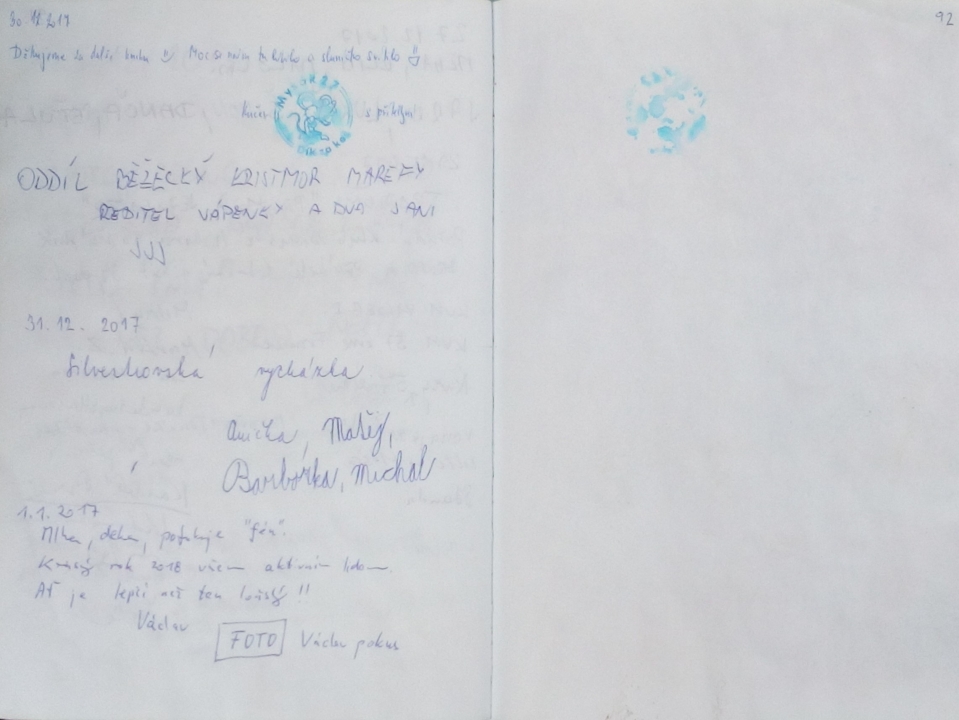 30.12.2017
Děkujeme za další knihu :) Moc se nám to líbilo a sluníčko svítilo
s přáteli
ODDÍL BĚŽECKÝ KRISTMOR MAREFY
ŘEDITEL VÁPENKY A DVA SANI
JJJ
31.12. 2017
Silvestrovská vycházka
Anička, Matěj,
Barborka, Michal
1.1.2017
Mlha, deka, pofukuje "fén".
Krásný rok 2018 všem aktivním lidem.
Ať je lepší než ten loňský !!
Václav
FOTO Václav pokus
92